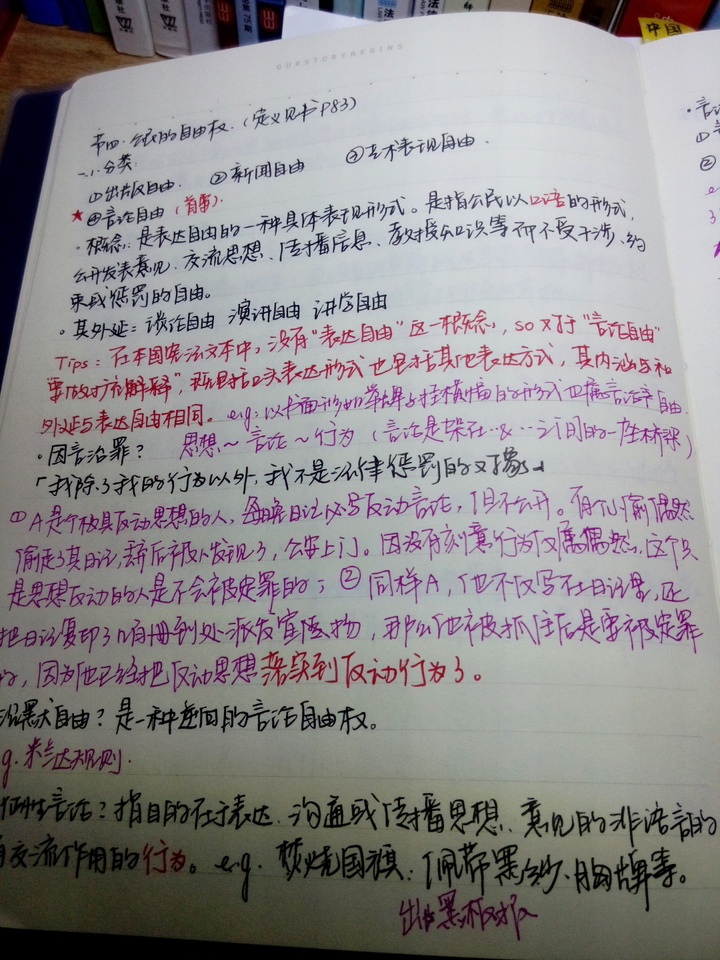 OURSTORYBEGINS
中国
节四. 公民的自由权. (定义见书P83)
一.分类:
①出版自由. ②新闻自由 ③艺术表现自由.
★④言论自由 (首要)
·概念: 是表达自由的一种具体表现形式。是指公民以口语的形式,
公开发表意见、交流思想、传播信息、教授知识等而不受干涉、约
束或惩罚的自由。
·其外延: 谈论自由 演讲自由 讲学自由
Tips: 在本国宪法文本中, 没有“表达自由”这一概念, so 对于“言论自由”
要做扩充解释, 既包括口头表达形式也包括其他表达方式, 其内涵与和
外延与表达自由相同。 e.g: 以书面形如举牌与挂横幅的形式也属言论自由
·因言治罪? 思想~言论~行为 (言论是架在..&..之间的一座桥梁)
「我除了我的行为以外, 我不是法律惩罚的对象」
①A是个极具反动思想的人, 每晚日记必写反动言论, 但不公开。有个小偷偶然
偷走了其日记, 薛后被人发现了, 公安上门。因没有刻意行为仅属偶然, 这个只
是思想反动的人是不会被定罪的; ②同样A, 他不仅写在日记里, 还
把日记复印了几百册到处派发宣传物, 那么他被抓住后是要被定罪
的, 因为他已经把反动思想落实到反动行为了。
沉默自由? 是一种逆向的言论自由权。
g. 米兰达规则.
性言论? 指目的在于表达、沟通或传播思想、意见的非语言的
有交流作用的行为。e.g. 焚烧国旗、佩带黑纱、胸牌等。
出黑板报